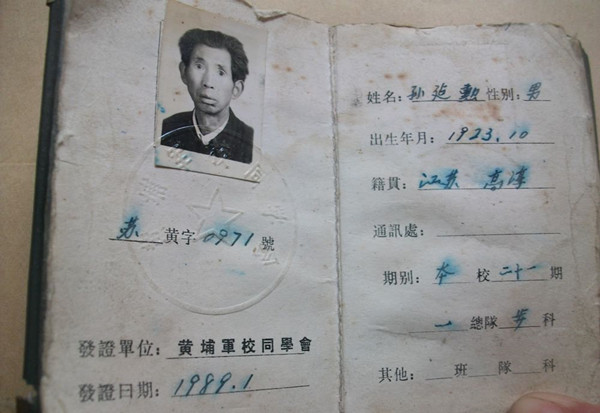 苏 黄字 0971 號
發證單位：黄埔軍校同學會
發證日期：1989.1
姓名：孙 勲 性别：男
出生年月：1923.10
籍貫：江苏 高淳
通訊處：
期别：本 校 二十一 期
一 總隊 步 科
其他： 班 隊 科